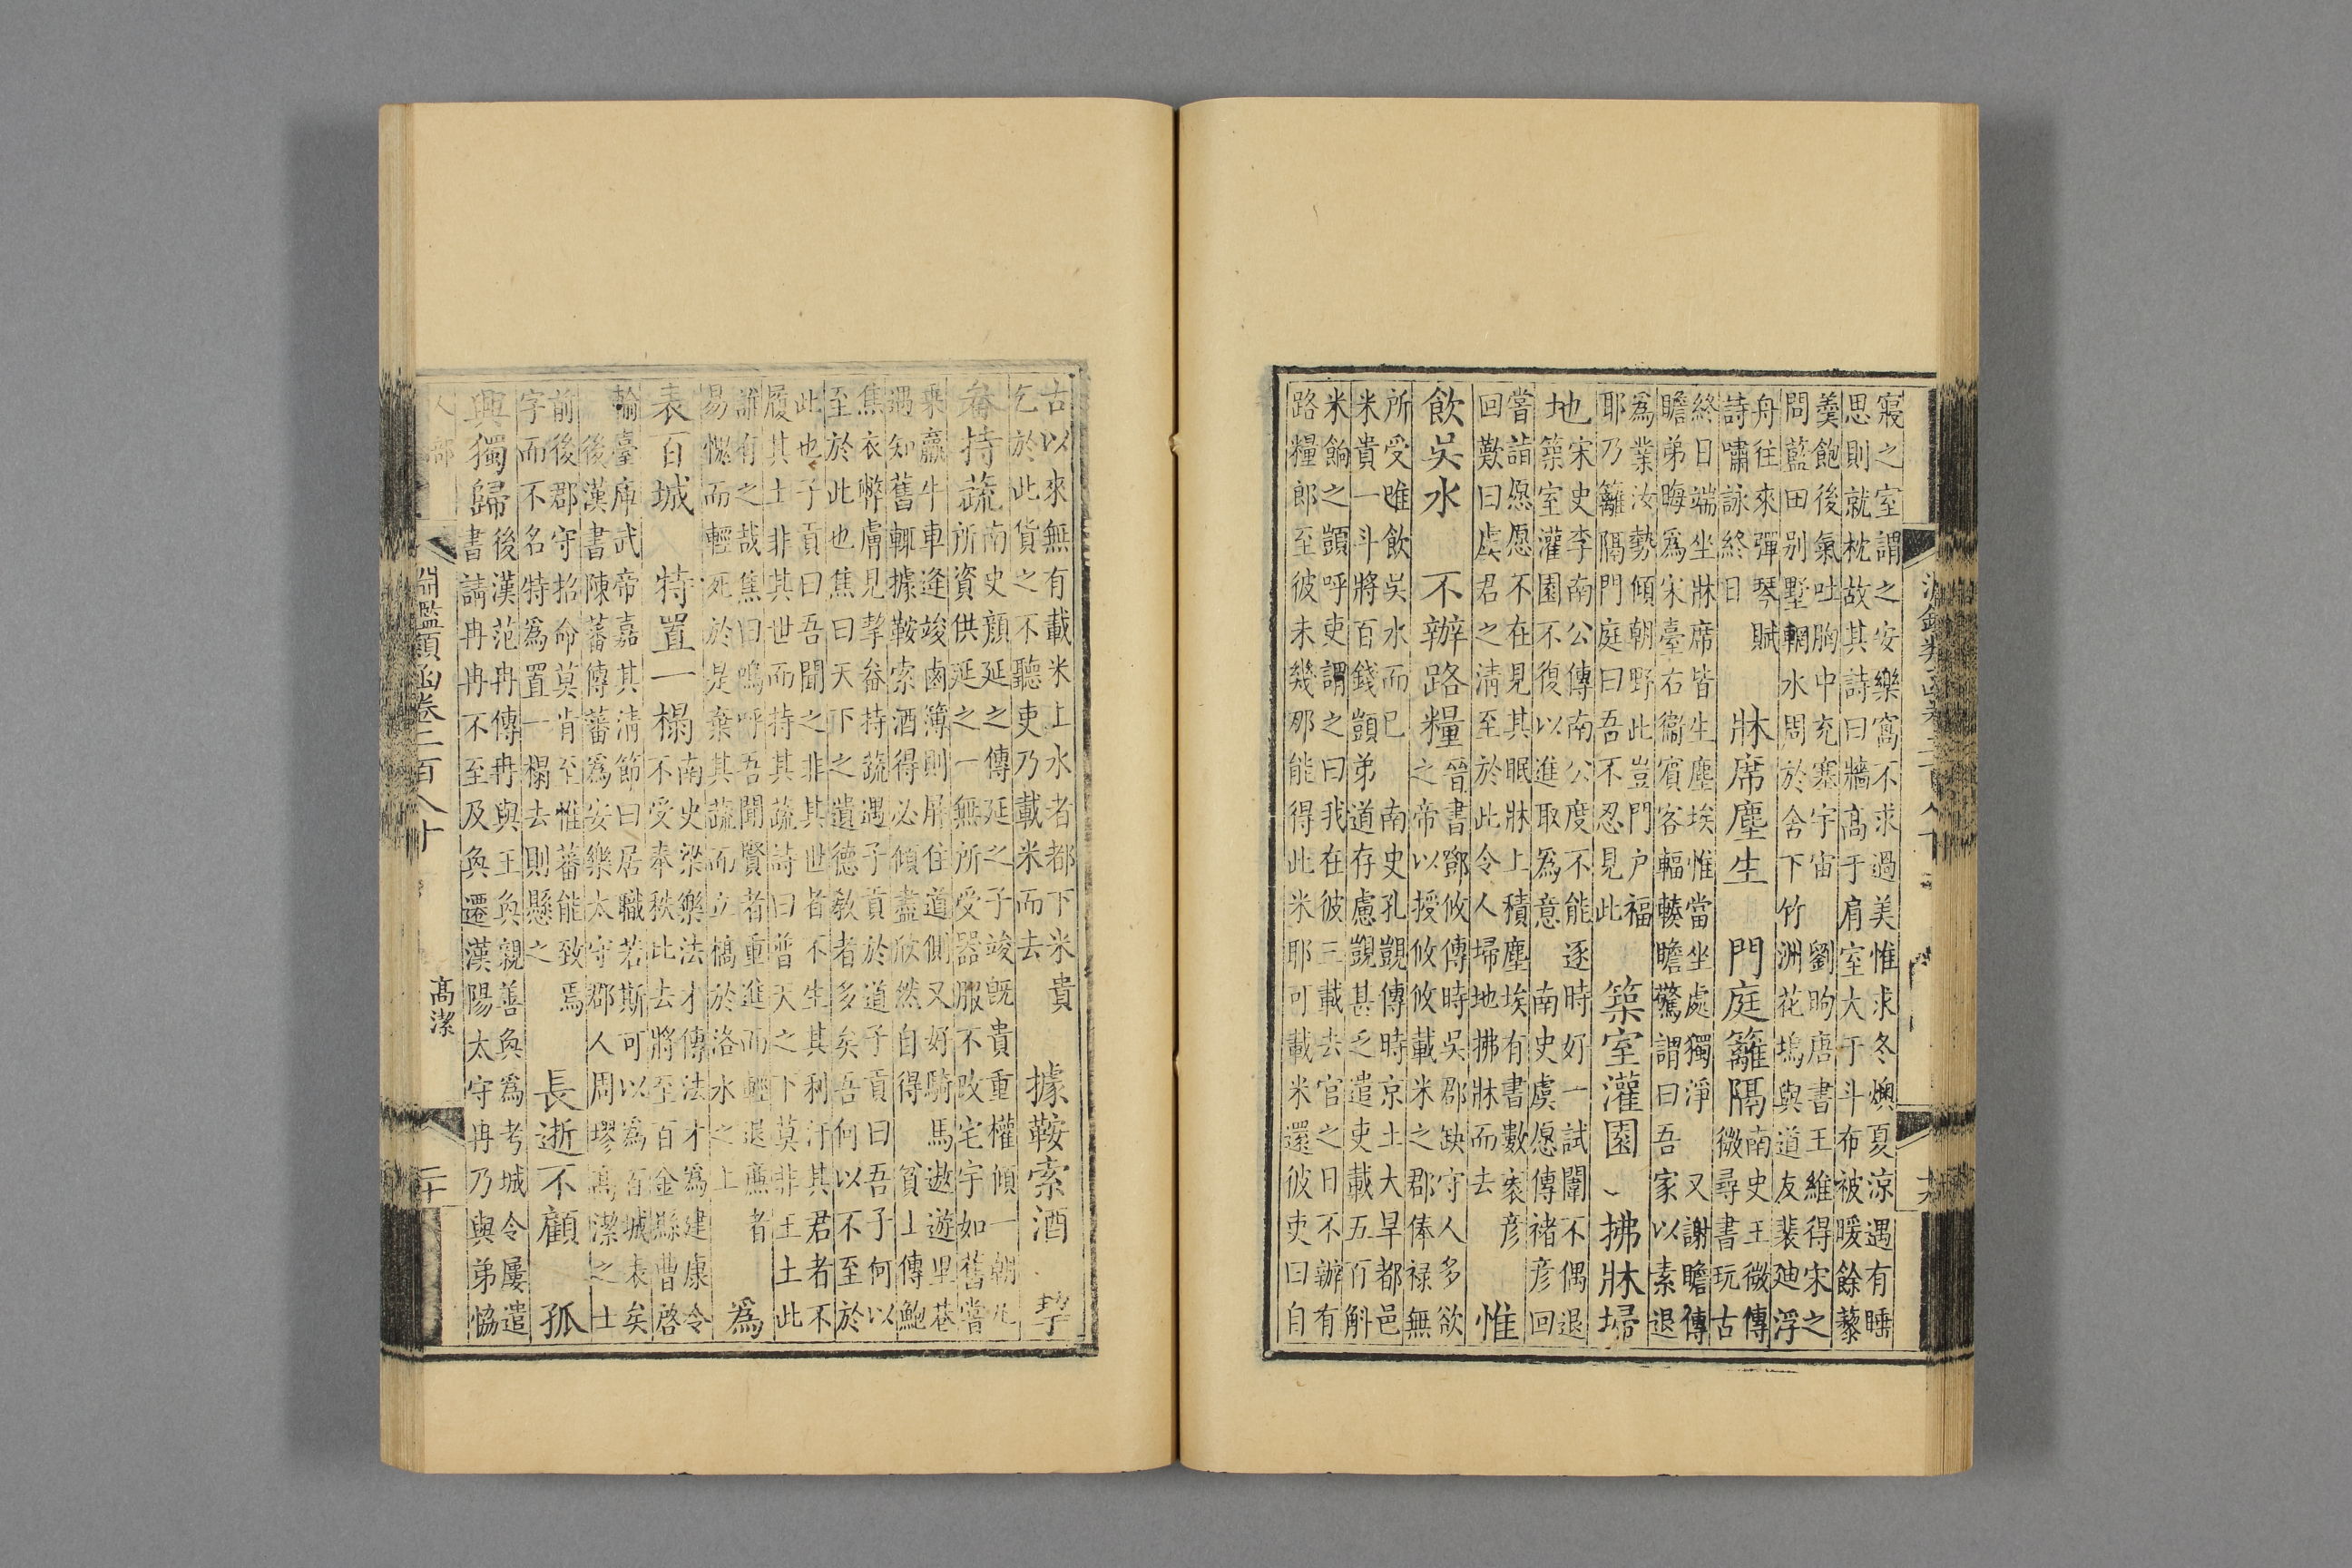 寢之室謂之安樂窩不求過美惟求冬燠夏涼遇有睡
思則就枕故其詩曰牆高于肩室大于斗布被暖餘藜
羹飽後氣吐胸中充塞宇宙 劉昫唐書王維得宋之
問藍田别墅輞水周於舍下竹洲花塢與道友裴廸浮
舟往來彈琴賦
詩嘯詠終日
牀席塵生 門庭籬隔
南史王微傳
微尋書玩古
終日端坐牀席皆生塵埃惟當坐處獨淨 又謝瞻傳
瞻弟晦為宋臺右衞賓客輻輳瞻驚謂曰吾家以素退
爲業汝勢傾朝野此豈門户福
耶乃籬隔門庭曰吾不忍見此
築室灌園 拂牀掃
地
宋史李南公傳南公度不能逐時好一試闈不偶退
築室灌園不復以進取為意 南史虞愿傳褚彦回
嘗詣愿愿不在見其眠牀上積塵埃有書數袠彦
回歎曰虞君之清至於此令人掃地拂牀而去
惟
飲吳水 不辦路糧
晉書鄧攸傳時吳郡缺守人多欲
之帝以授攸攸載米之郡俸禄無
所受唯飲吳水而已 南史孔覬傳時京土大旱都邑
米貴一斗將百錢顗弟道存慮覬甚乏遣吏載五百斛
米餉之顗呼吏謂之曰我在彼三載去官之日不辦有
路糧郎至彼未幾那能得此米耶可載米還彼吏曰自
古以來無有載米上水者都下米貴
乞於此貨之不聽吏乃載米而去
據鞍索酒 挈
畚持蔬
南史顔延之傳延之子竣旣貴重權傾一朝凡
所資供延之一無所受器服不改宅宇如舊嘗
乘羸牛車逢竣鹵簿則屏住道側又好騎馬遨遊里巷
遇知舊輒據鞍索酒得必傾盡欣然自得 貧士傳鮑
焦衣弊膚見挈畚持蔬遇子貢於道子貢曰吾子何以
至於此也焦曰天下之遺德敎者多矣吾何以不至於
此也子貢曰吾聞之非其世者不生其利汙其君者不
履其土非其世而持其蔬詩曰普天之下莫非王土此
誰有之哉焦曰嗚呼吾聞賢者重進而輕退廉者
易愧而輕死於是棄其蔬而立槁於洛水之上
爲
表百城 特置一榻
南史梁樂法才傳法才為建康令
不受奉秩比去將至百金縣曹啓
輸臺庫武帝嘉其清節曰居職若斯可以為百城表矣
後漢書陳蕃傳蕃為安樂太守郡人周璆高潔之士
前後郡守招命莫肯至惟蕃能致焉
字而不名特為置一榻去則懸之
長逝不顧 孤
興獨歸
後漢范冉傳冉與王奐親善奐為考城令屢遣
書請冉冉不至及奐遷漢陽太守冉乃與弟恊
人部
淵鑑類函卷二百八十
高潔
二十